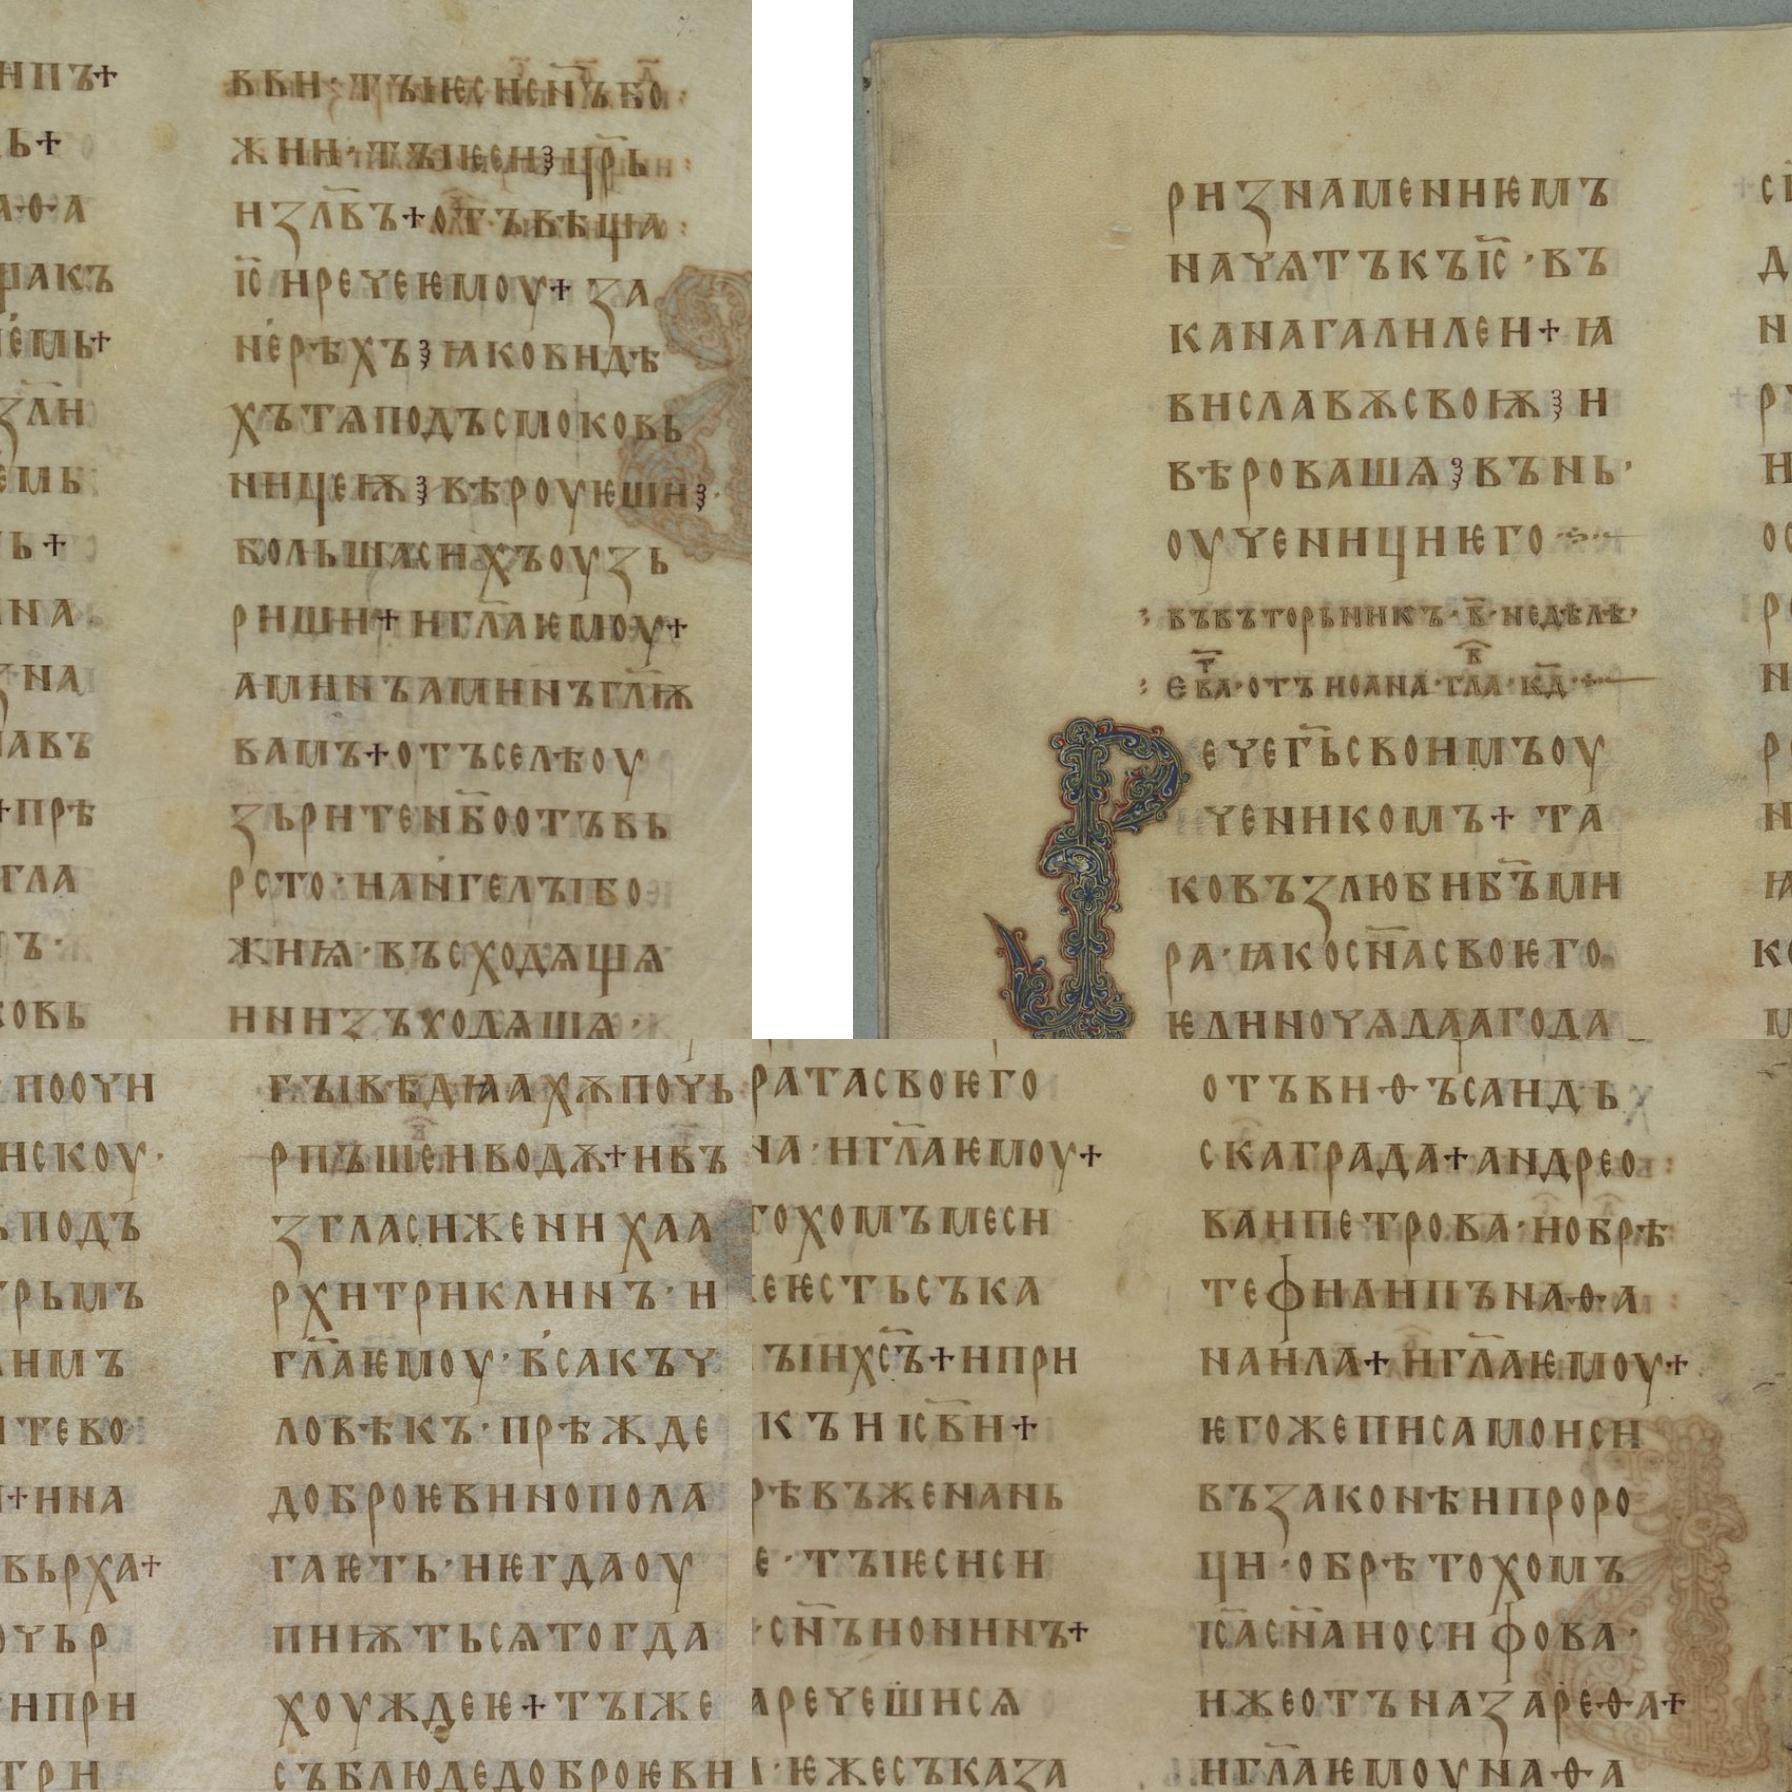 ипъ+
ь+
аѳа
шакъ
емь+
зл҃и
емь
ь+
на
зна
авъ
+прѣ
гла
ъ·
ковь
вви·тыѥсисн҃ъбо
жии·тыѥси цр҃ь
изл҃въ+отъвѣща
іс҃ иречеѥмоу+ за
нерѣхъ ꙗковидѣ
хътѧподъсмоковь
ницеѭ вѣроуѥши
большасихъоузь
риши+игл҃аѥмоу+
аминъаминъгл҃ѭ
вамъ+отъселѣоу
зьритенб҃оотъвь
рсто·наньгелыбо
жиꙗ·въсходѧщѧ
иннзъходѧщѧ·
ризнамениѥмъ
начѧтъкъіс҃·въ
канагалилеи+ꙗ
виславѫсвоѭ и
вѣровашѧ вънь·
оученициѥго
въвъторьникъ·в҃·недѣлѣ·
ева·отъиоана·гла·кд҃·
Речегь҃своимъоу
ченикомъ+ та
ковъзлюбиб҃ъми
ра·ꙗкосн҃асвоѥго
ѥдиночѧдаагода
поочи
нскоу·
ъподъ
трьмъ
нимъ
тево
+ина
вьрха+
очьр
ипри
три
гывѣдꙗахѫпочь
рпъшеиводѫ+ивъ
згласижених҃аа
рхитриклинъ·и
гл҃аѥмоу·всакъч
ловѣкъ·прѣжде
доброѥвинопола
гаѥть·иѥгдаоу
пиѭтьсѧтогда
хоуждеѥ+тыже
съблюдедоброѥви
ратасвоѥго
на·игл҃аѥмоу+
тохомъмеси
ѥстьсъка
ыихс҃ъ+ипри
къиісв҃и+
рѣвъженань
е·тыѥсиси
·сн҃ъионинъ+
аречешисѧ
·ѥжесъказа
отъвиѳъсаидѣ
скаграда+андрео
ваипетрова·иобрѣ
тефилипънаѳа
наила+игл҃аѥмоу+
ѥгожеписамоиси
възаконѣипроро
ци·обрѣтохомъ
іс҃асн҃аиосифова·
ижеотъназареѳа+
игл҃аѥмоунаѳа